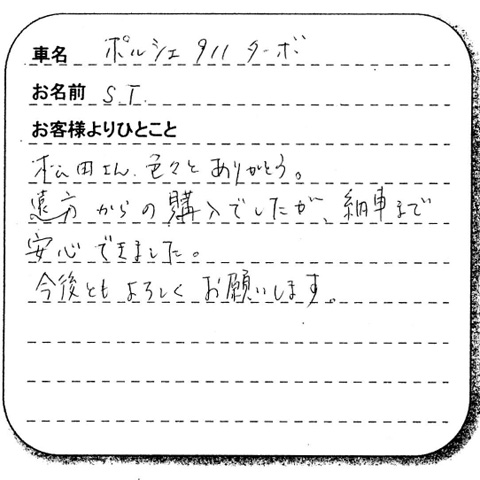 車名 ポルシェ 911 ターボ
お名前 S.T.
お客様よりひとこと
松田さん、色々とありがとう。
遠方からの購入でしたが、納車まで
安心できました。
今後ともよろしくお願いします。